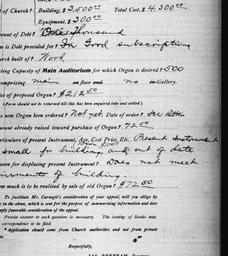 of Church? Building, $3,500.00 Total Cost, $4,300.00
Equipment, $300.00
ount of Debt? One thousand
n is Debt provided for? In Good subscription
rch built of? Wood
ting Capacity of Main Auditorium for which Organ is desired? 500
comprising main on floor and no in Gallery.
e of proposed Organ? $2125.00
(Form should not be returned till this has been inquired into and settled.)
new Organ been ordered? Not yet Date of order?
ount already raised toward purchase of Organ? 72.00
rticulars of present Instrument, Age, Cost Price, Etc. Present Instrument
small for building and out of date
eason for displacing present Instrument? Does not meet
irements of building.
ow much is to be realized by sale of old Organ? $72.50
To facilitate Mr. Carnegie's consideration of your appeal, will you oblige by
ing in the above, which is sent for the purpose of summarizing information and does
mply favorable consideration of the appeal.
Precise answer to each question is necessary. The issuing of blanks may
correspondence to be filed.
Application should come from Church authorities and not from private
Respectfully,
JAS. BERTRAM,